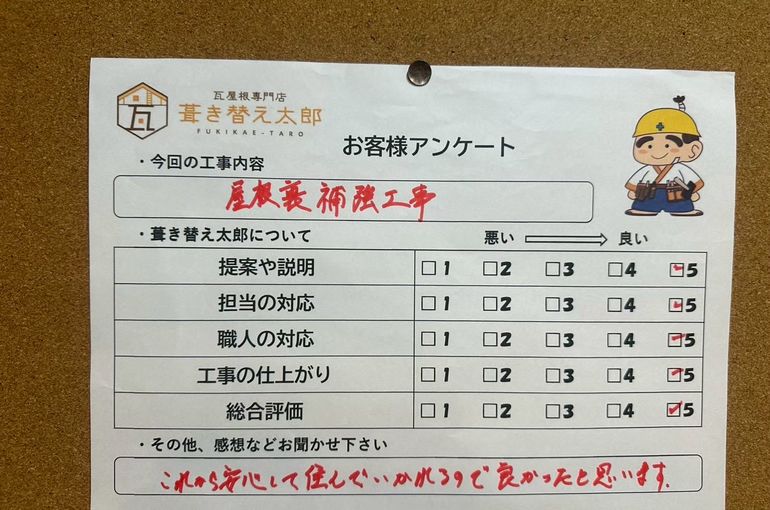 瓦屋根専門店
葺き替え太郎
FUKIKAE-TARO
お客様アンケート
・今回の工事内容
屋根裏補強工事
・葺き替え太郎について 悪い 良い
提案や説明 1 2 3 4 5
担当の対応 1 2 3 4 5
職人の対応 1 2 3 4 5
工事の仕上がり 1 2 3 4 5
総合評価 1 2 3 4 5
・その他、感想などお聞かせ下さい
これから安心して住んでいかれるので良かったと思います.